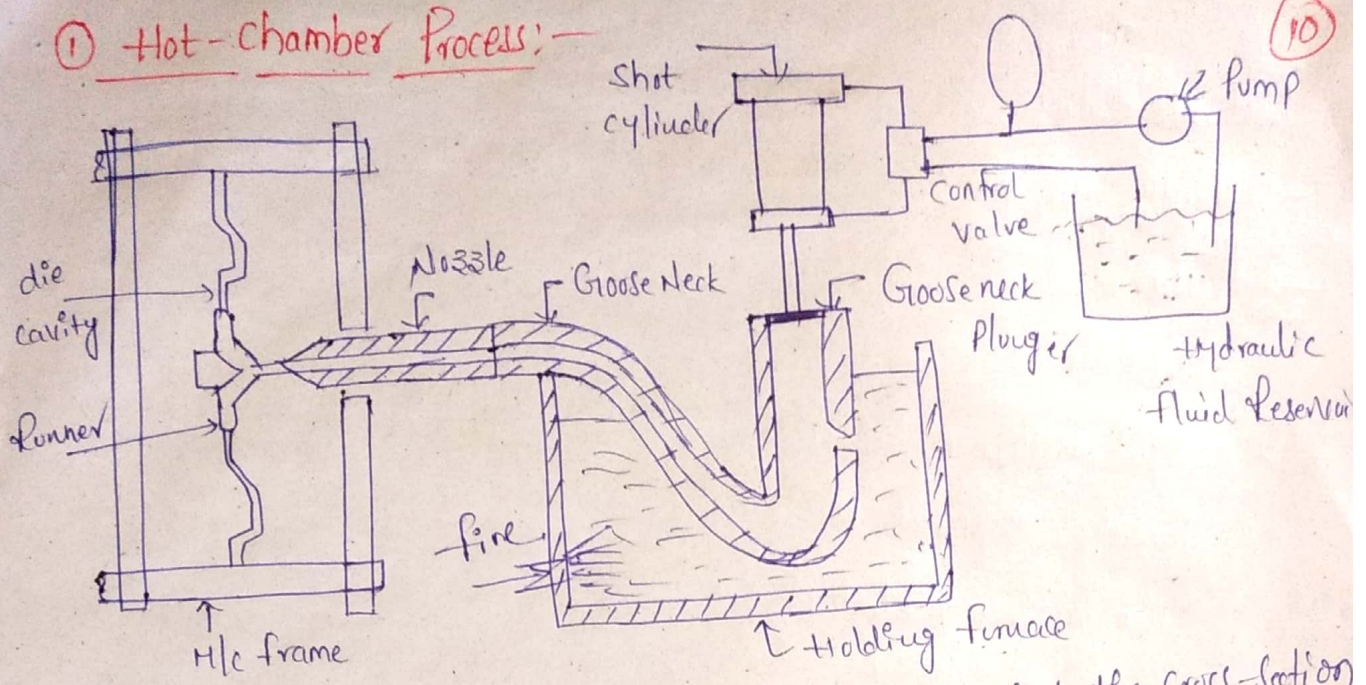 ① Hot-Chamber Process:-
10
Shot
cylinder
Pump
Control
valve
die
cavity
Nozzle
Goose Neck
Goose neck
Plunger
Hydraulic
fluid Reservoi
Runner
fire
Holding furnace
M/c frame
the cross-section